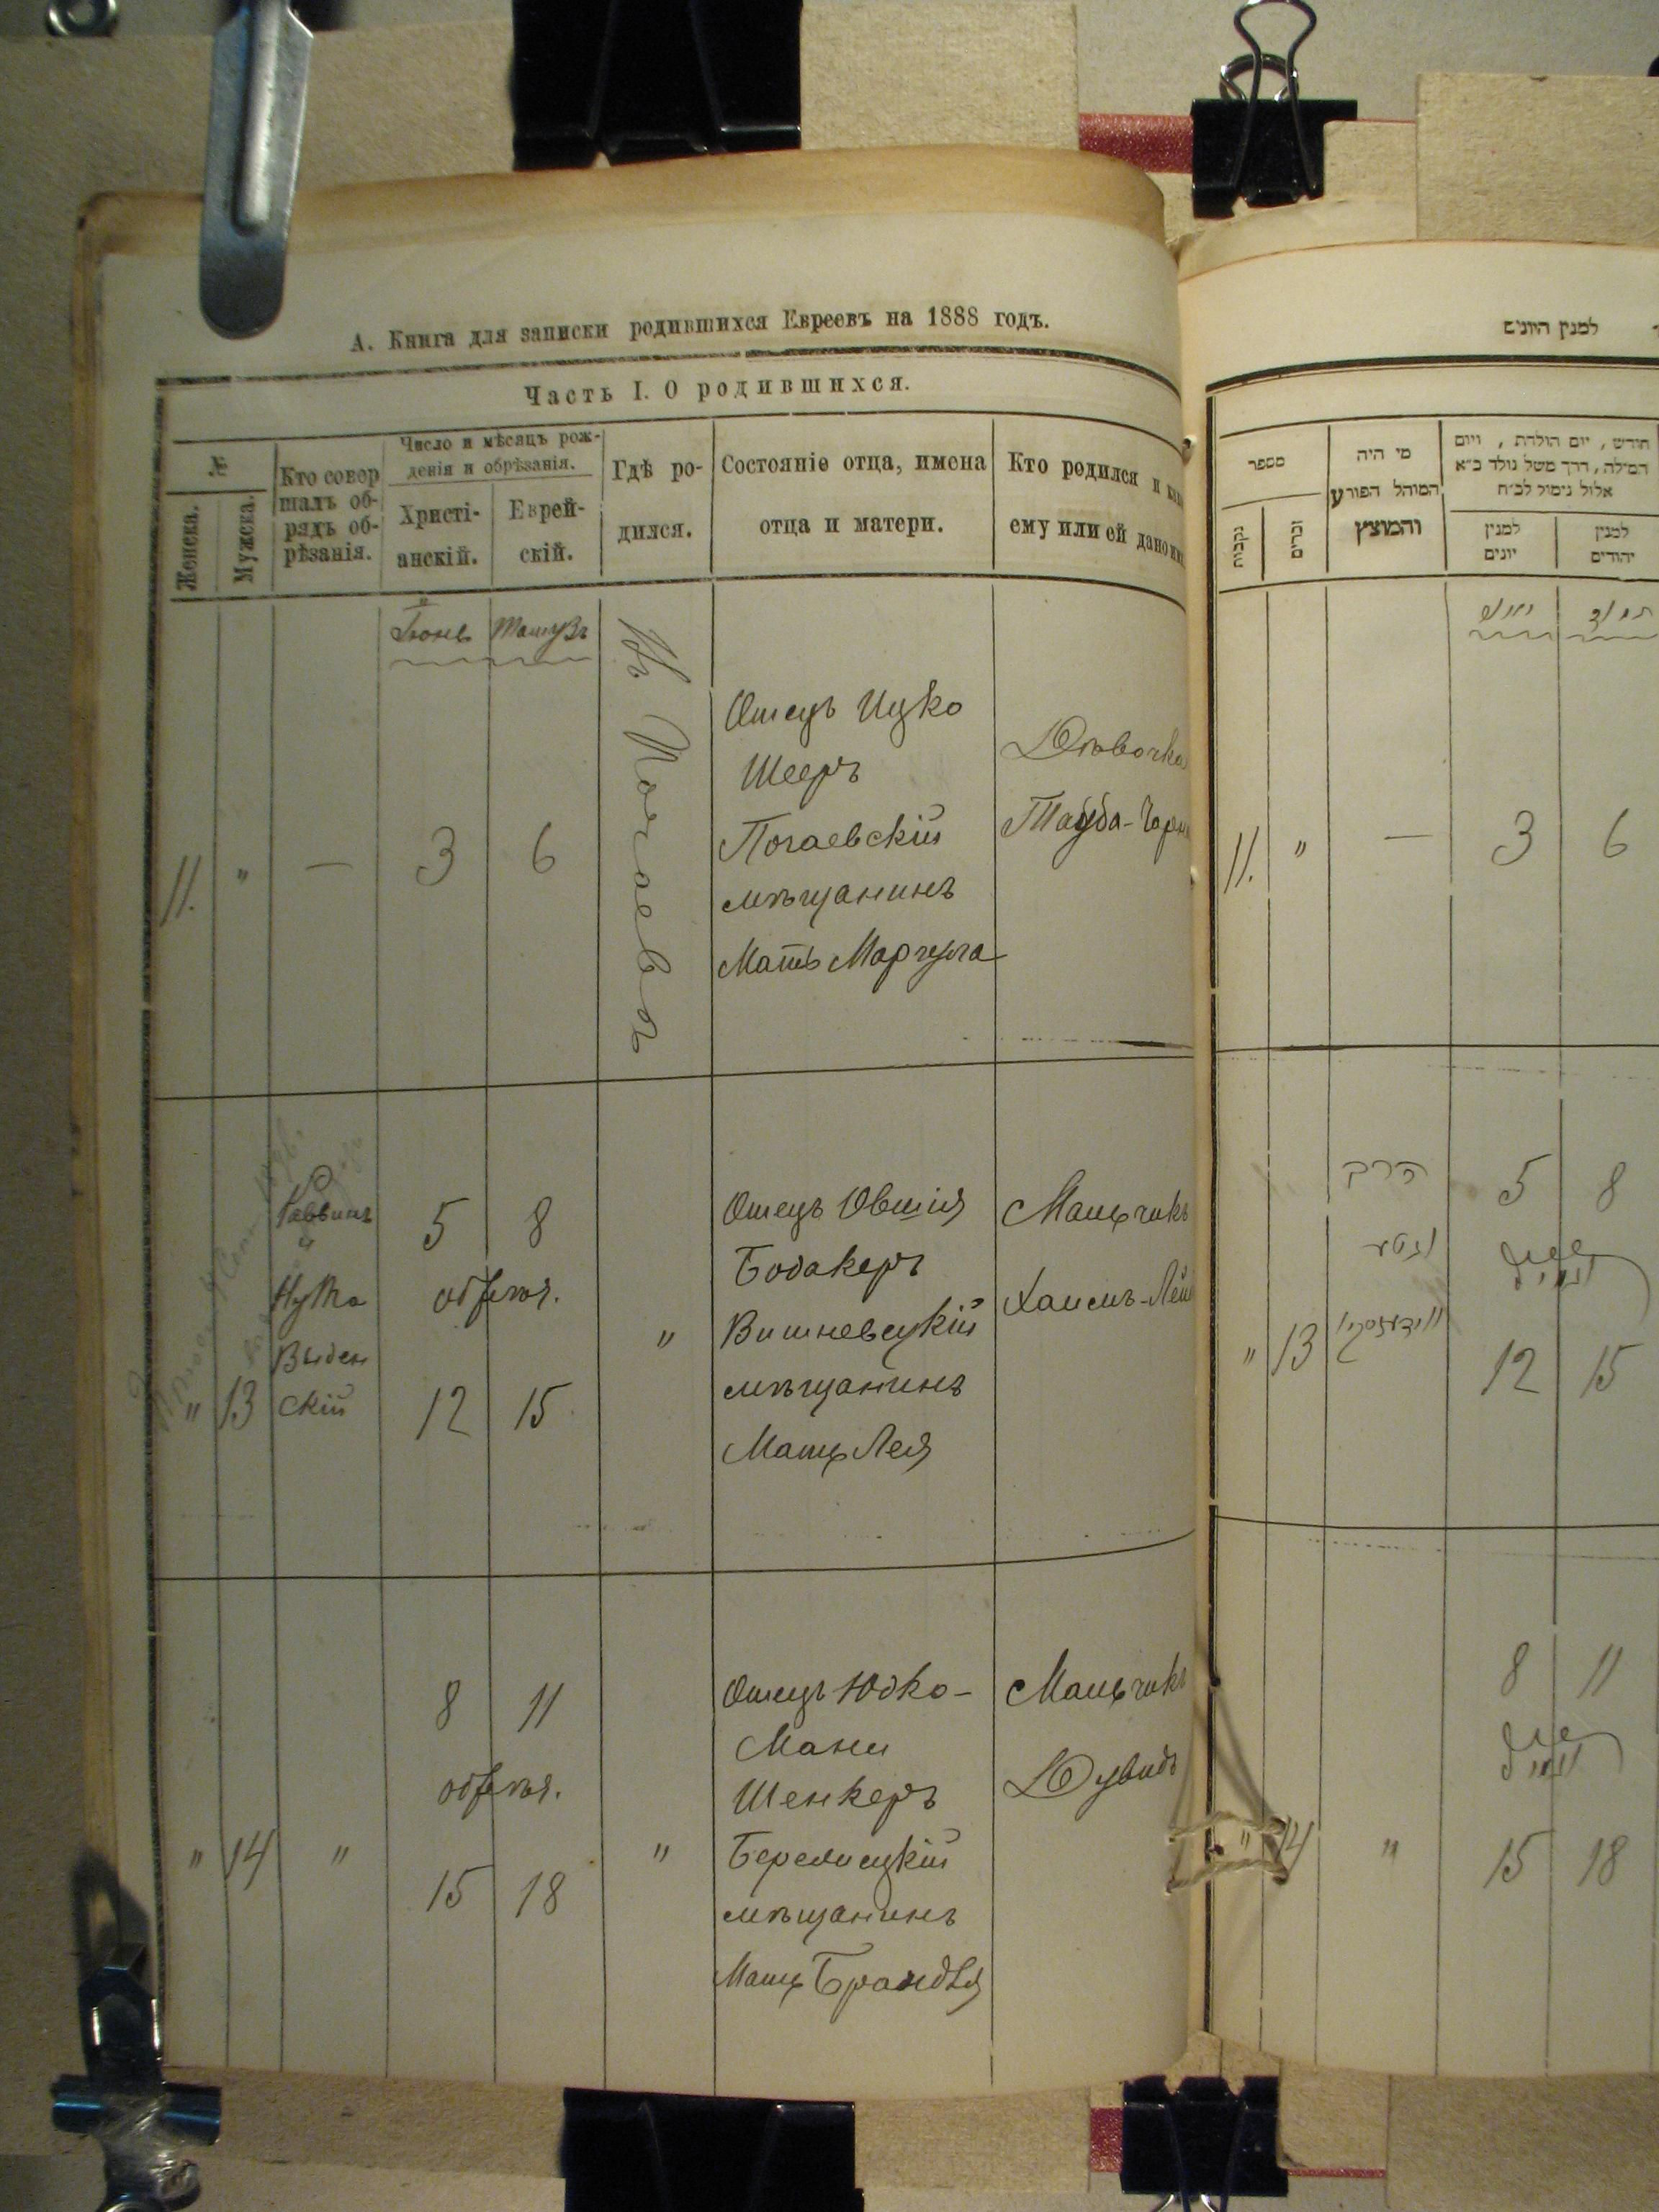 А. Книга для записки родившихся Евреевъ на 1888 годъ.
Часть I. О родившихся.
№
Женска.
Мужска.
Кто совер
шалъ об-
рядъ об-
рѣзанія.
Число и мѣсяцъ рож-
денія и обрѣзанія.
Христі-
анскій.
Еврей-
скій.
Гдѣ ро-
дился.
Состояніе отца, имена
отца и матери.
Кто родился и
ему или ей дано
Іюнь
Тамузъ
Въ Почаевѣ
11.
"
—
3
6
Отецъ Ицко
Шееръ
Почаевскій
мѣщанинъ
Мать
Дѣвочка
Тауба-
"
13
Раввинъ
и
Нутка
Выден
скій
5
8
обрѣзан.
12
15
"
Отецъ Овшія
Бодакеръ
Вишневецкій
мѣщанинъ
Мать Лея
Мальчикъ
Хаимъ-
"
14
"
8
11
обрѣзан.
15
18
"
Отецъ Юдко-
Мани
Шенкеръ
Берестецкій
мѣщанинъ
Мать
Мальчикъ
Дувидъ
למנין היונים
מספר
נקבות
זכרים
מי היה
המוהל הפורע
והמוצץ
חודש, יום הולדת, ויום
המילה, דרך משל נולד כ״א
אלול נימול לכ״ח
למנין
יונים
למנין
יהודים
11.
"
—
3
6
"
13
הרב
5
8
12
15
"
14
"
8
11
15
18